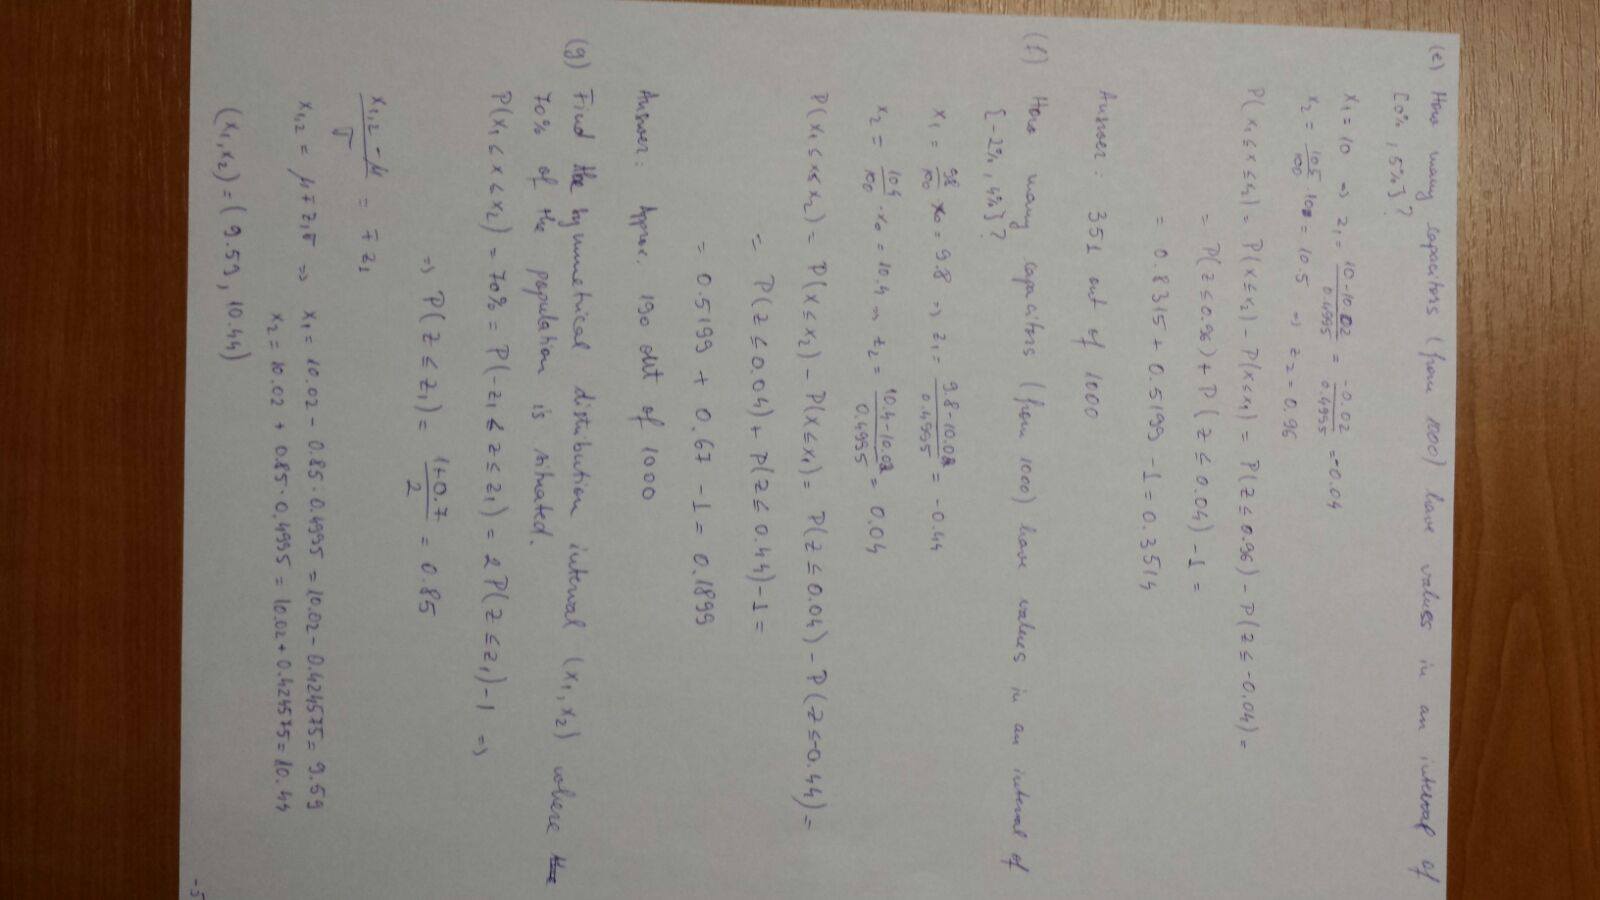 (e) How many capacitors (from 1000) have values in an interval of
[0%, 5%]?
x₁ = 10 ⇒ z₁ = (10-10.02)/0.4995 = -0.02/0.4995 = -0.04
x₂ = 105/100 · 10 = 10.5 ⇒ z₂ = 0.96
P(x₁ ≤ x ≤ x₂) = P(x ≤ x₂) - P(x ≤ x₁) = P(z ≤ 0.96) - P(z ≤ -0.04) =
= P(z ≤ 0.96) + P(z ≤ 0.04) - 1 =
= 0.8315 + 0.5199 - 1 = 0.3514
Answer: 351 out of 1000
(f) How many capacitors (from 1000) have values in an interval of
[-2%, 4%]?
x₁ = 98/100 · x₀ = 9.8 ⇒ z₁ = (9.8-10.02)/0.4995 = -0.44
x₂ = 104/100 · x₀ = 10.4 ⇒ z₂ = (10.4-10.02)/0.4995 = 0.04
P(x₁ ≤ x ≤ x₂) = P(x ≤ x₂) - P(x ≤ x₁) = P(z ≤ 0.04) - P(z ≤ -0.44) =
= P(z ≤ 0.04) + P(z ≤ 0.44) - 1 =
= 0.5199 + 0.67 - 1 = 0.1899
Answer: Approx. 190 out of 1000
(g) Find the symmetrical distribution interval (x₁, x₂) where
70% of the population is situated.
P(x₁ ≤ x ≤ x₂) = 70% = P(-z₁ ≤ z ≤ z₁) = 2P(z ≤ z₁) - 1 ⇒
⇒ P(z ≤ z₁) = (1+0.7)/2 = 0.85
(x₁,₂ - μ)/σ = ∓z₁
x₁,₂ = μ ∓ z₁σ ⇒ x₁ = 10.02 - 0.85 · 0.4995 = 10.02 - 0.424575 = 9.59
x₂ = 10.02 + 0.85 · 0.4995 = 10.02 + 0.424575 = 10.44
(x₁, x₂) = (9.59, 10.44)
-5